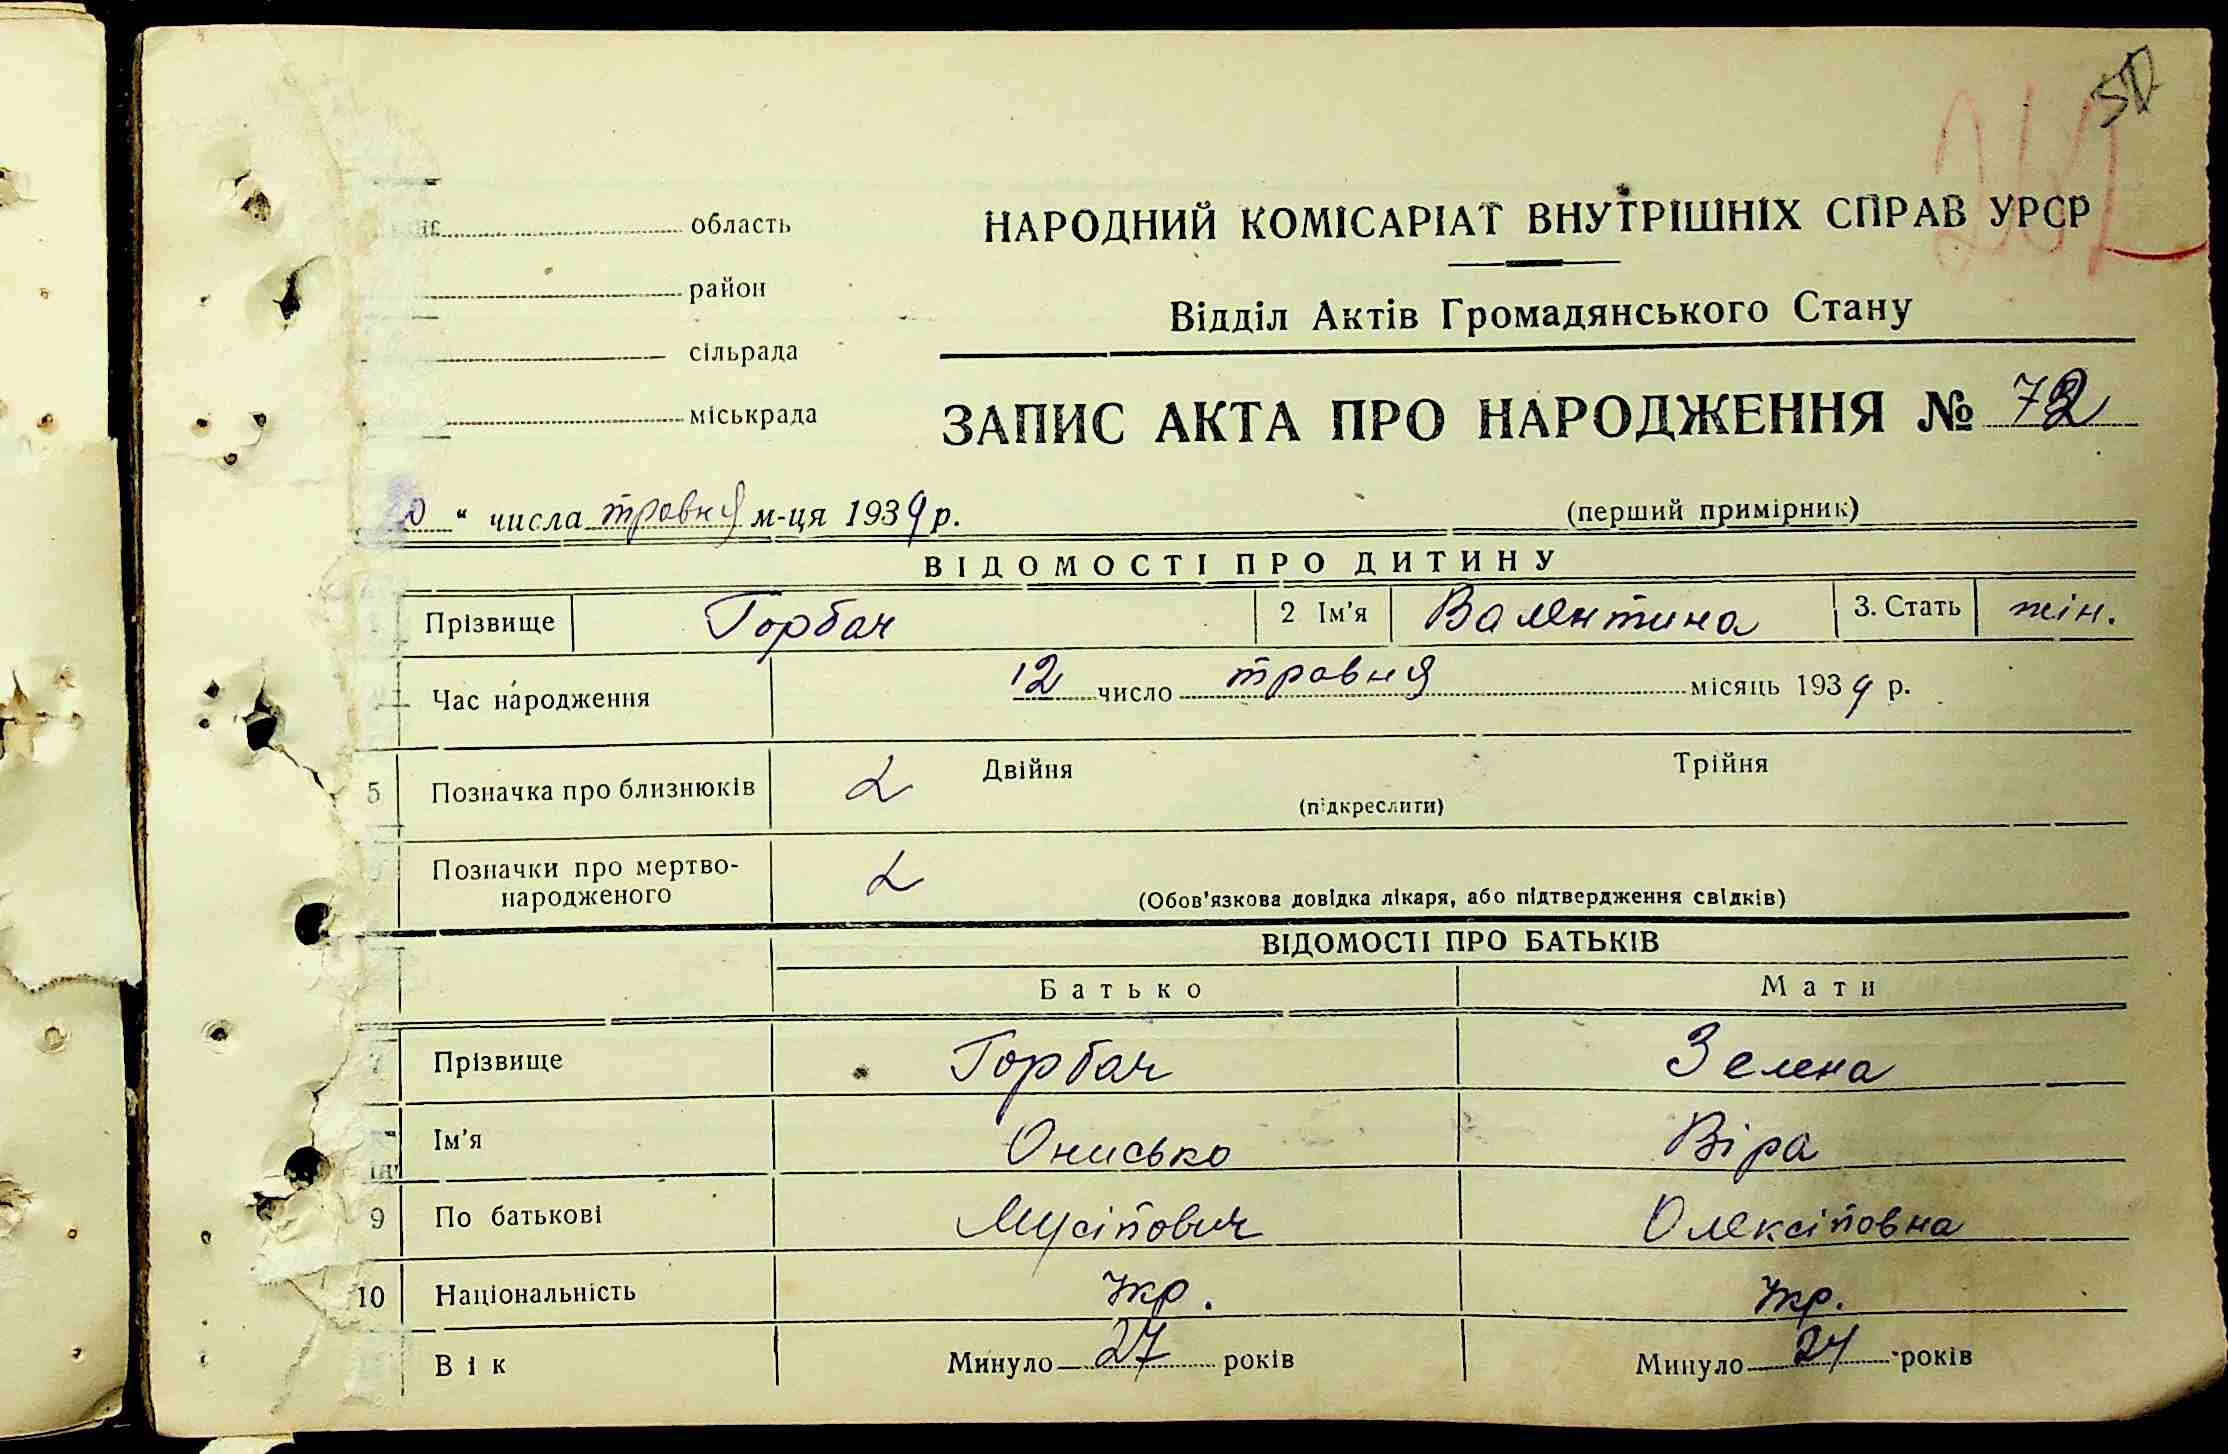 50
область
НАРОДНИЙ КОМІСАРІАТ ВНУТРІШНІХ СПРАВ УРСР
район
Відділ Актів Громадянського Стану
сільрада
міськрада
ЗАПИС АКТА ПРО НАРОДЖЕННЯ № 72
" числа травня м-ця 1939 р.
(перший примірник)
ВІДОМОСТІ ПРО ДИТИНУ
Прізвище Горбач 2 Ім'я Валентина 3. Стать жін.
Час народження 12 число травня місяць 1939 р.
5 Позначка про близнюків Двійня Трійня
(підкреслити)
Позначки про мертво-
народженого
(Обов'язкова довідка лікаря, або підтвердження свідків)
ВІДОМОСТІ ПРО БАТЬКІВ
Батько Мати
7 Прізвище Горбач Зелена
Ім'я Онисько Віра
9 По батькові Мусіпович Олексіповна
10 Національність Укр. Укр.
Вік Минуло 27 років Минуло 24 років